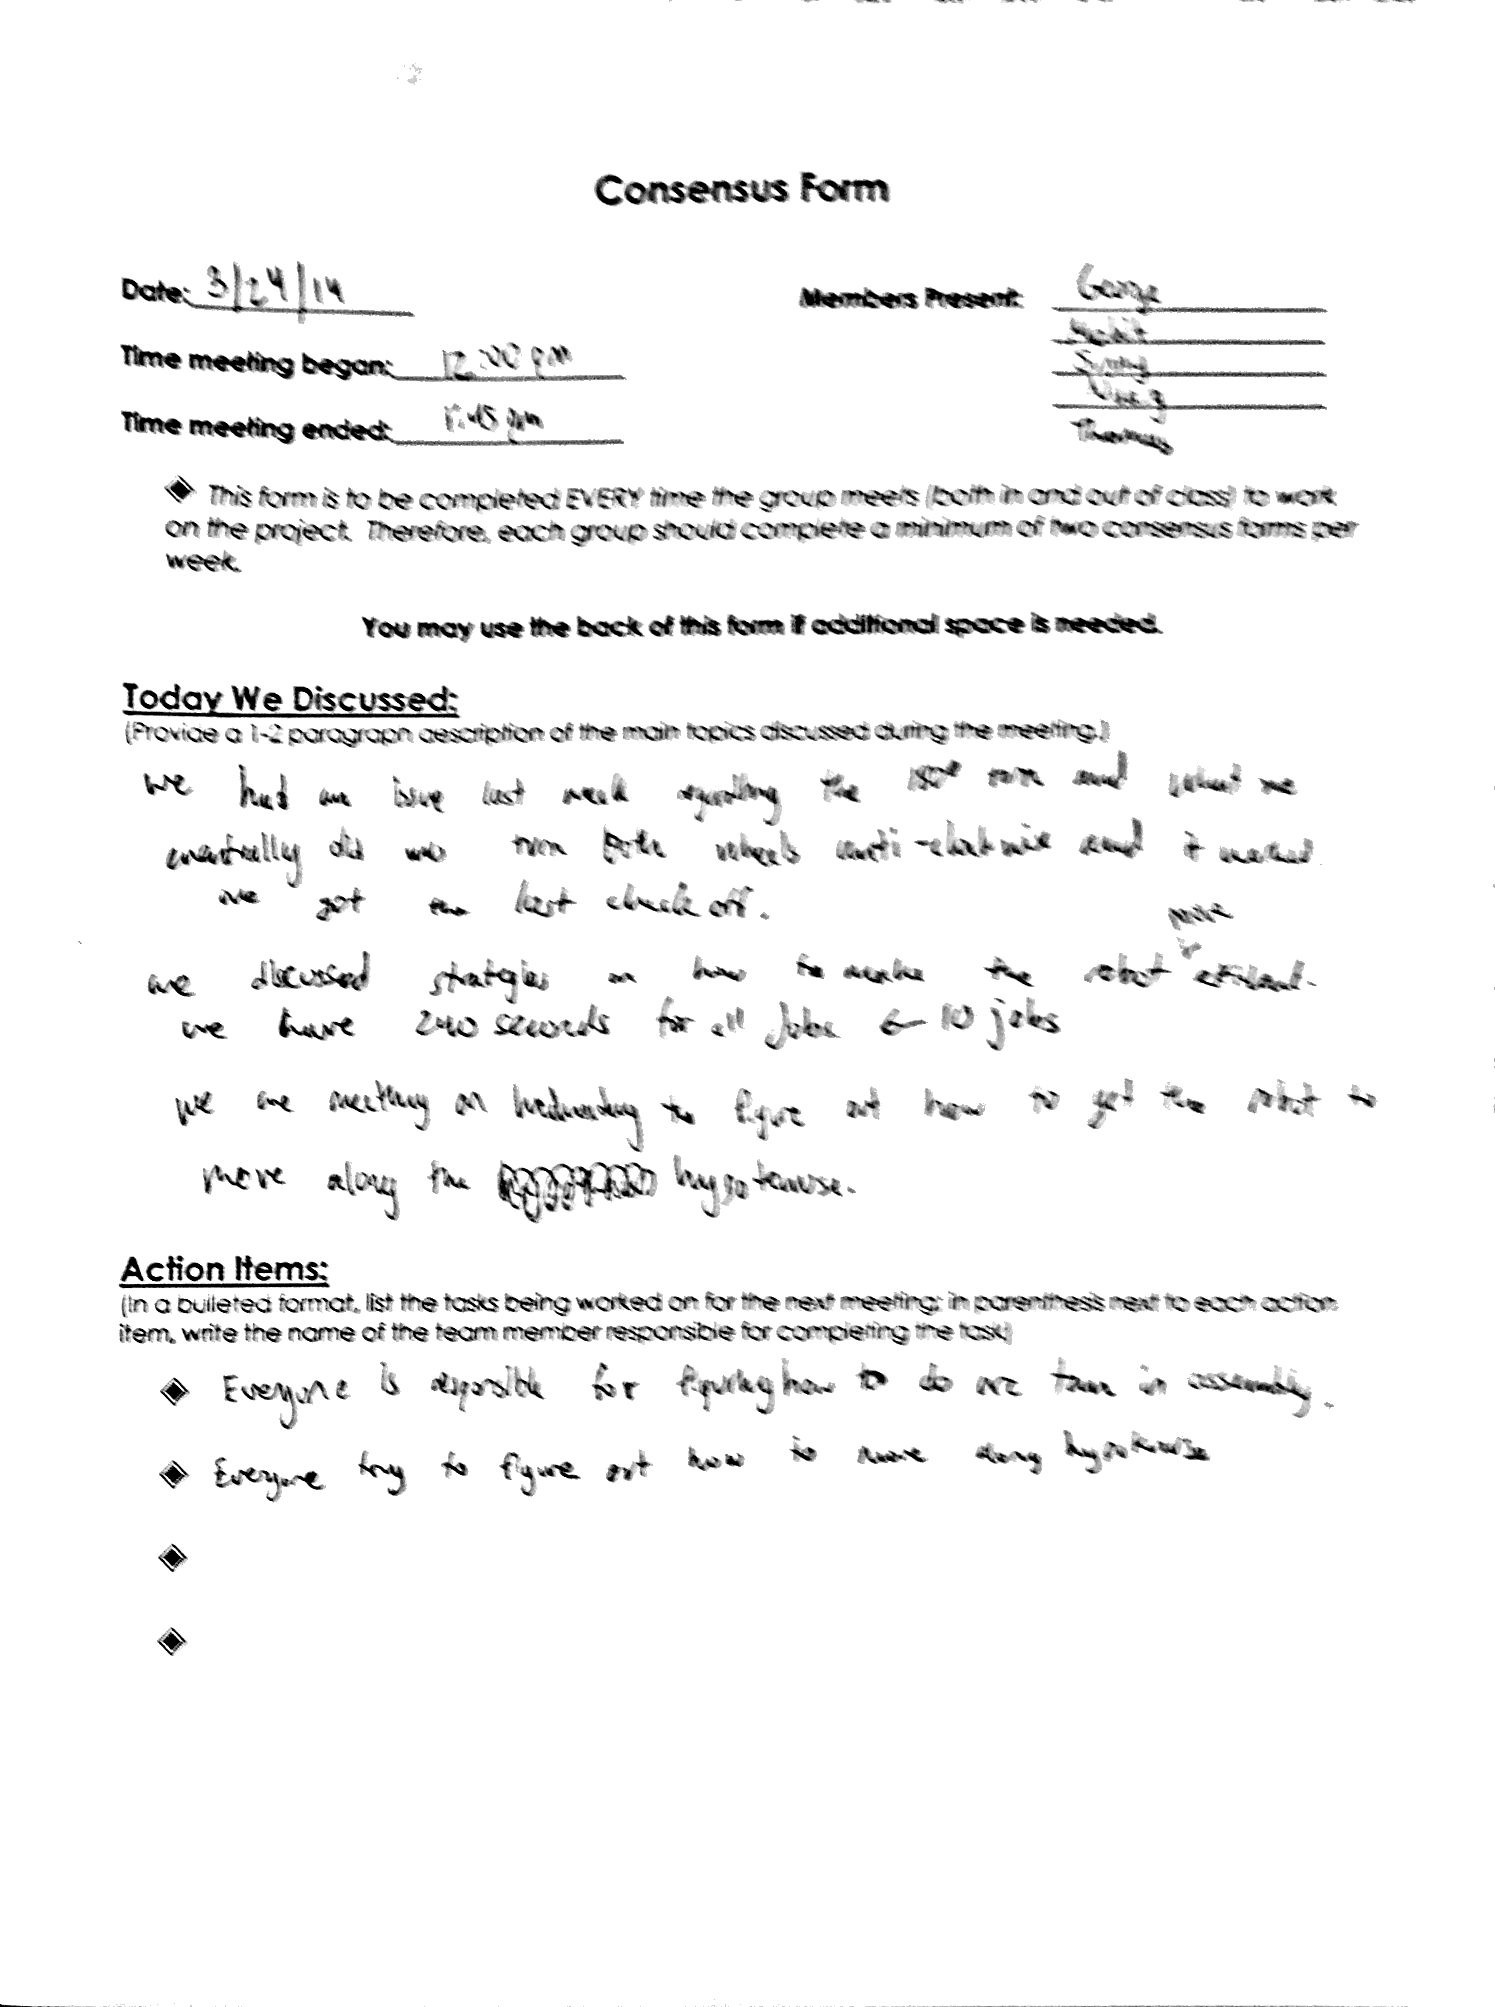 Consensus Form
Date: 3/24/14
Members Present: George
Time meeting began: 12:00 pm
Time meeting ended: 1:45 pm
Thomas
This form is to be completed EVERY time the group meets (both in and out of class) to work
on the project. Therefore, each group should complete a minimum of two consensus forms per
week.
You may use the back of this form if additional space is needed.
Today We Discussed:
(Provide a 1-2 paragraph description of the main topics discussed during the meeting.)
we had an issue last week regarding the 180° turn and what we
eventually did was turn both wheels and it worked.
we got the last check off.
more
we discussed strategies on how to make the robot efficient.
we have 240 seconds for all jobs ← 10 jobs
we are meeting on Wednesday to figure out how to get the robot to
move along the hypotenuse.
Action Items:
(In a bulleted format, list the tasks being worked on for the next meeting; in parenthesis next to each action
item, write the name of the team member responsible for completing the task)
Everyone is responsible for figuring how to do arc turn in assembly.
Everyone try to figure out how to move along hypotenuse